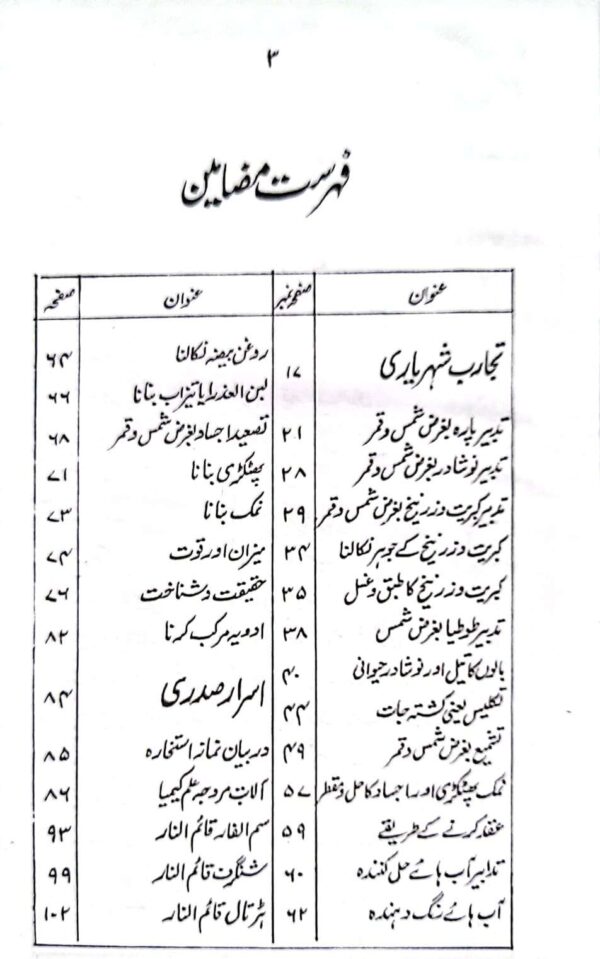 ۳
فہرست مضامین
عنوان صفحہ نمبر عنوان صفحہ
تجارب شہریاری ۱۷
تدبیر پارہ بغرض شمس و قمر ۲۱
تدبیر نوشادر بغرض شمس و قمر ۲۸
تدبیر کبریت و زرنیخ بغرض شمس و قمر ۲۹
کبریت و زرنیخ کے جوہر نکالنا ۳۴
کبریت و زرنیخ کا طبق و غسل ۳۵
تدبیر طوطیا بغرض شمس ۳۸
بالوں کا تیل اور نوشادر حیوانی ۴۰
تکلیس یعنی کشتہ جات ۴۴
تشمیع بغرض شمس و قمر ۴۹
نمک پھٹکڑی اور اجساد کا حل و تقطر ۵۷
عقد کرنے کے طریقے ۵۹
تدابیر آب ہائے حل کنندہ ۶۰
آب ہائے رنگ دہندہ ۶۲
روغن بیضہ نکالنا ۶۴
لبن العذرا یا تیزاب بنانا ۶۶
تصعید اجساد بغرض شمس و قمر ۶۸
پھٹکڑی بنانا ۷۱
نمک بنانا ۷۳
میزان اور قوت ۷۴
حقیقت و شناخت ۷۶
ادویہ مرکب کرنا ۸۲
اسرار صدری ۸۴
در بیان نماز استخارہ ۸۵
آلات مروجہ علم کیمیا ۸۶
سم الفار قائم النار ۹۳
شنگرف قائم النار ۹۹
ہڑتال قائم النار ۱۰۲